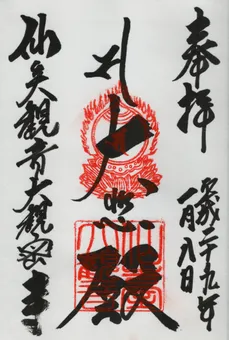 奉拝
平成二十九年
一月八日
大悲殿
仙台觀音大觀密寺